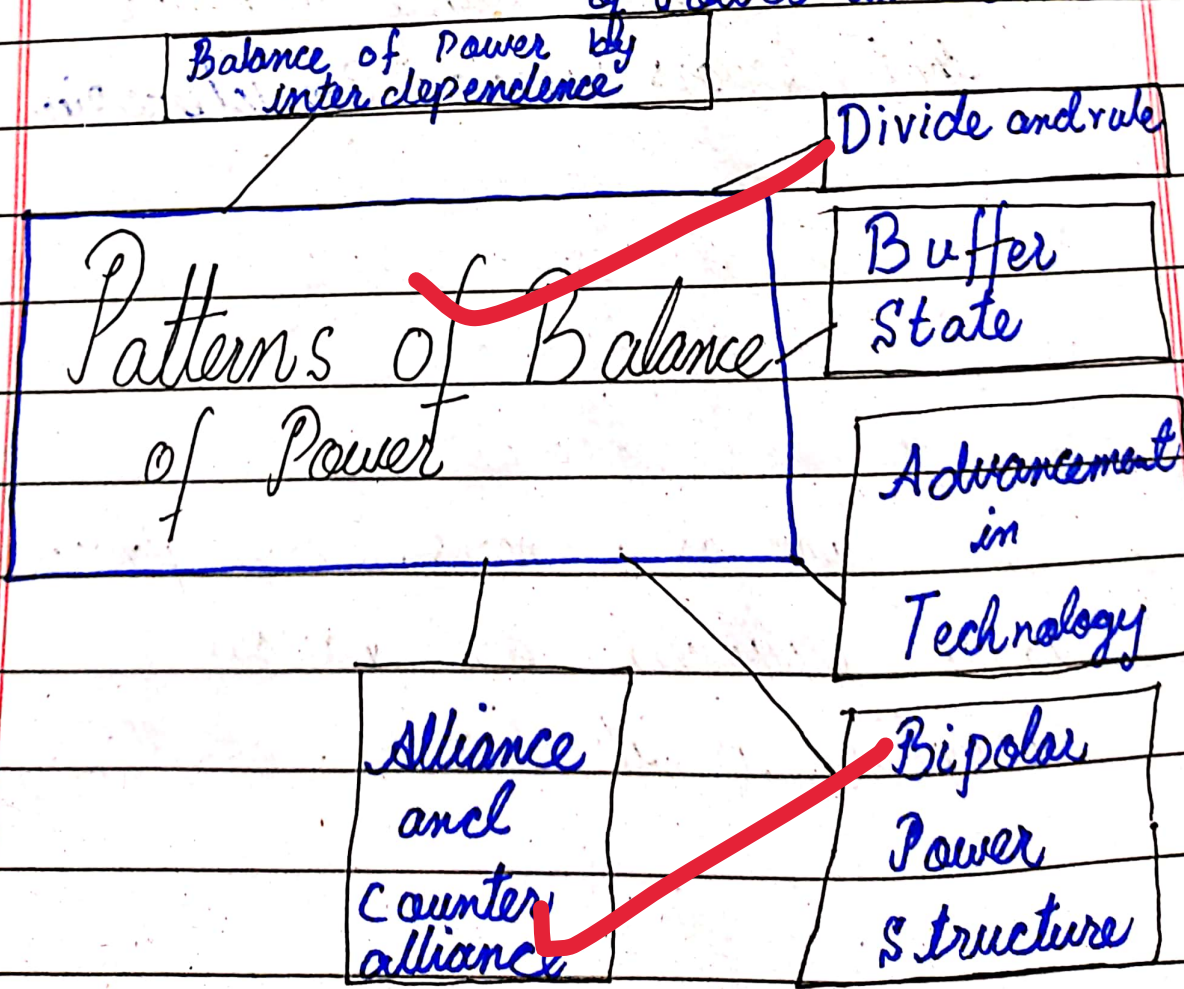 Balance of Power by
inter dependence
Divide and rule
Buffer
State
Patterns of Balance
of Power
Advancement
in
Technology
Alliance
and
Counter
alliance
Bipolar
Power
Structure